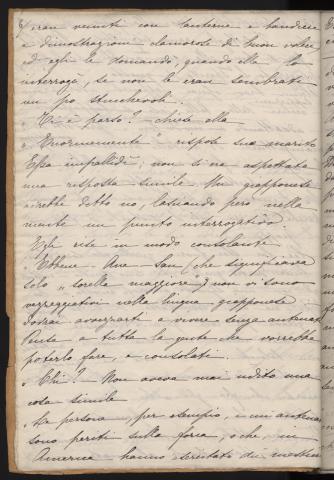 eran venuti con lanterne e bandiere
e dimostrazioni clamorose di buon volere
ed egli le domandò, quando ella lo
interrogò, se non le eran sembrati
un po stucchevoli.
"Vi è parso? - chiese ella
"Enormemente" rispose suo marito
Essa impallidì; non si era aspettata
una risposta simile. Un giapponese
avrebbe detto no, lasciando però nella
mente un punto interrogativo.
Egli rise in modo consolante
"Ebbene. Ane-San (che significava
solo "sorella maggiore") non vi sono
vezzeggiativi nella lingua giapponese.
dovrai avvezzarti a vivere senza antenati
Pensa a tutta la gente che vorrebbe
poterlo fare, e consolati.
"Chi? - Non aveva mai udito una
cosa simile
"Le persone, per esempio, i cui antenati
sono periti sulla forca, o che, in
America hanno